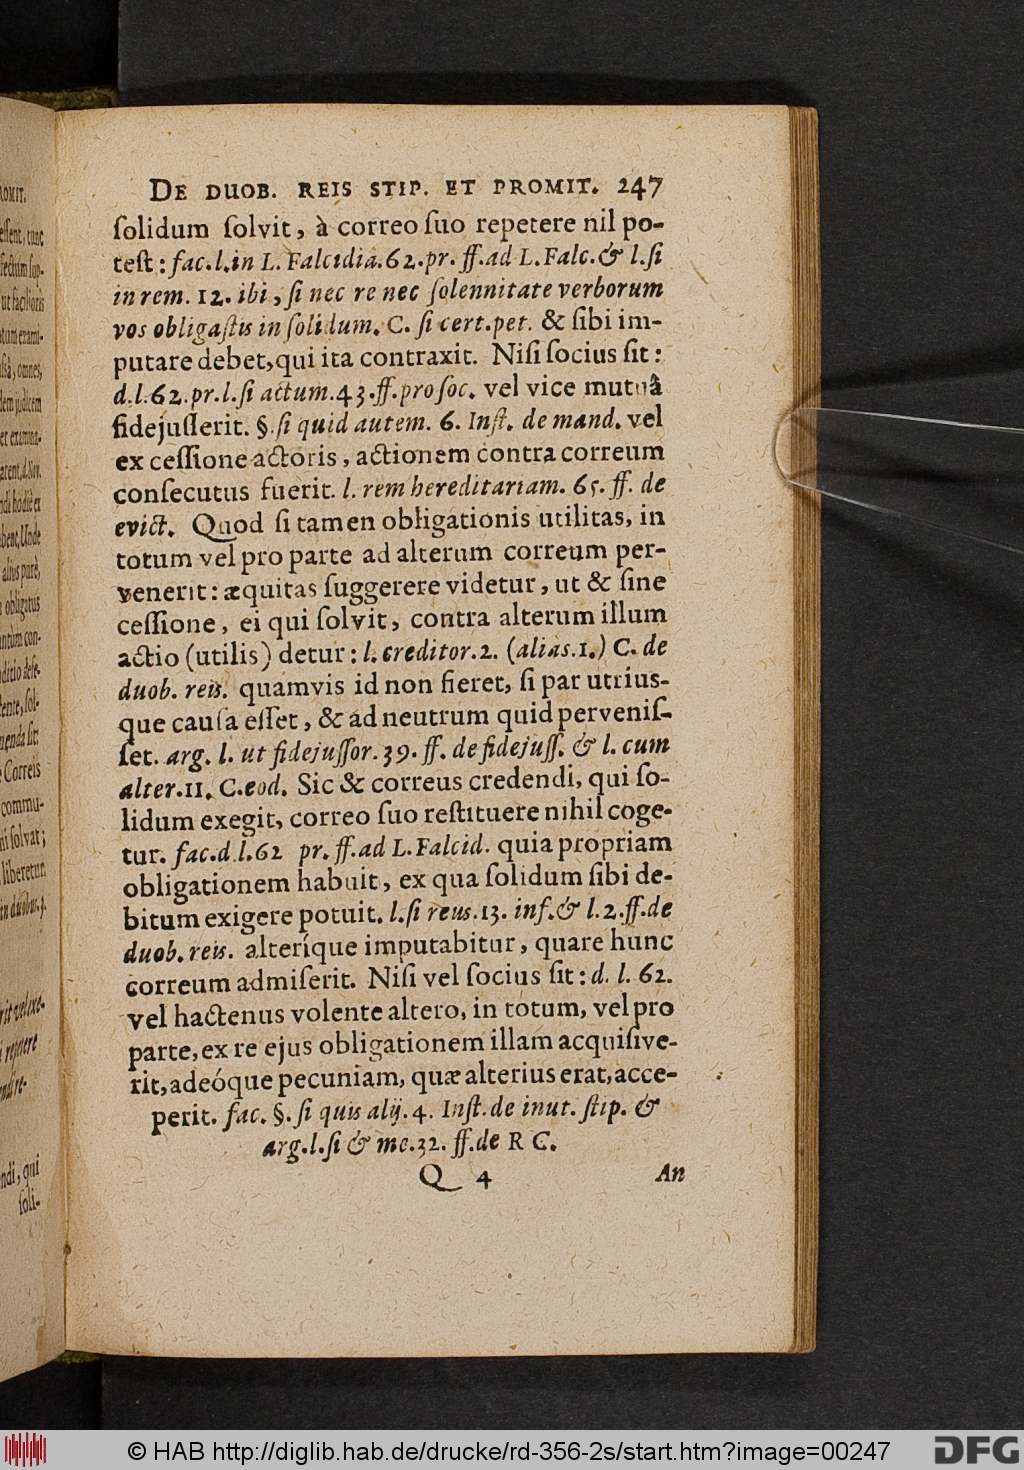 De duob. reis stip. et promit. 247
ſolidum ſolvit, à correo ſuo repetere nil po-
teſt: fac. l. in L. Falcidia. 62. pr. ff. ad L. Falc. & l. ſi
in rem. 12. ibi, ſi nec re nec ſolennitate verborum
vos obligaſtis in ſolidum. C. ſi cert. pet. & ſibi im-
putare debet, qui ita contraxit. Niſi ſocius ſit:
d. l. 62. pr. l. ſi actum. 43. ff. pro ſoc. vel vice mutuâ
fidejuſſerit. §. ſi quid autem. 6. Inſt. de mand. vel
ex ceſſione actoris, actionem contra correum
conſecutus fuerit. l. rem hereditariam. 65. ff. de
evict. Quod ſi tamen obligationis utilitas, in
totum vel pro parte ad alterum correum per-
venerit: æquitas ſuggerere videtur, ut & ſine
ceſſione, ei qui ſolvit, contra alterum illum
actio (utilis) detur: l. creditor. 2. (alias. 1.) C. de
duob. reis. quamvis id non fieret, ſi par utrius-
que cauſa eſſet, & ad neutrum quid perveniſ-
ſet. arg. l. ut fidejuſſor. 39. ff. de fidejuſſ. & l. cum
alter. 11. C. eod. Sic & correus credendi, qui ſo-
lidum exegit, correo ſuo reſtituere nihil coge-
tur. fac. d. l. 62 pr. ff. ad L. Falcid. quia propriam
obligationem habuit, ex qua ſolidum ſibi de-
bitum exigere potuit. l. ſi reus. 13. inf. & l. 2. ff. de
duob. reis. alteríque imputabitur, quare hunc
correum admiſerit. Niſi vel ſocius ſit: d. l. 62.
vel hactenus volente altero, in totum, vel pro
parte, ex re ejus obligationem illam acquiſive-
rit, adeóque pecuniam, quæ alterius erat, acce-
perit. fac. §. ſi quis alij. 4. Inſt. de inut. ſtip. &
arg. l. ſi & me. 32. ff. de R C.
Q 4 An
© HAB http://diglib.hab.de/drucke/rd-356-2s/start.htm?image=00247
DFG